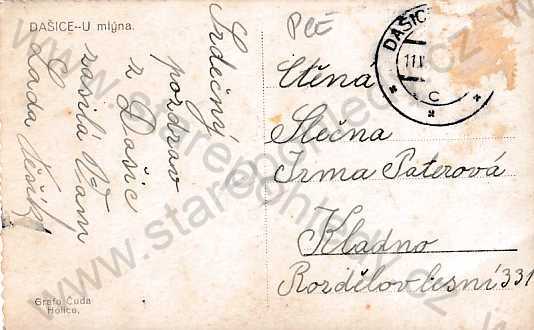 DAŠICE--U mlýna.
Srdečný
pozdrav
z Dašic
zasílá Vám
Lada
Grafo Čuda
Holice.
PCE
DAŠICE
11.
C
Ctěná
Slečna
Irma Paterová
Kladno
Rozdělov lesní 331
www.starepohledy.cz